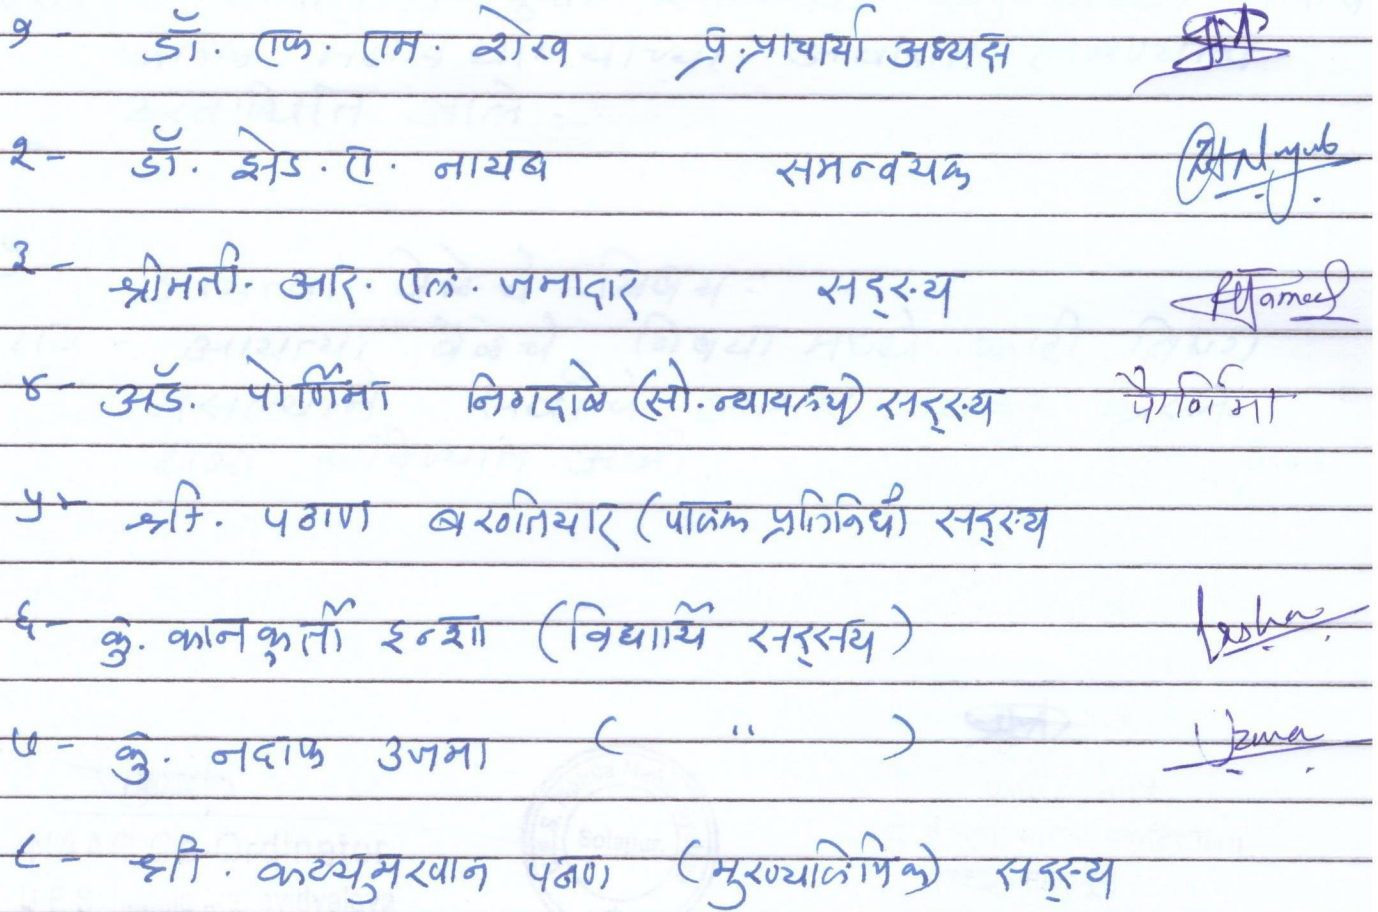 १- डॉ. एफ. एम. शेख प्र.प्राचार्या अध्यक्ष
२- डॉ. झेड. ए. नायब समन्वयक
३- श्रीमती. आर. एल. जमादार सद्स्य
४- अ‍ॅड. पौर्णिमा निगदाळे (सौ. न्यायलये) सद्स्य पौर्णिमा
५- श्री. पठाण बखतियार (पालक प्रतिनिधी) सद्स्य
६- कु. कानकुर्ती इन्शा (विद्यार्थि सद्स्य)
७- कु. नदाफ उजमा ( " ) Uzma
८- श्री. कय्युमखान पठाण (मुख्यलिपिक) सद्स्य